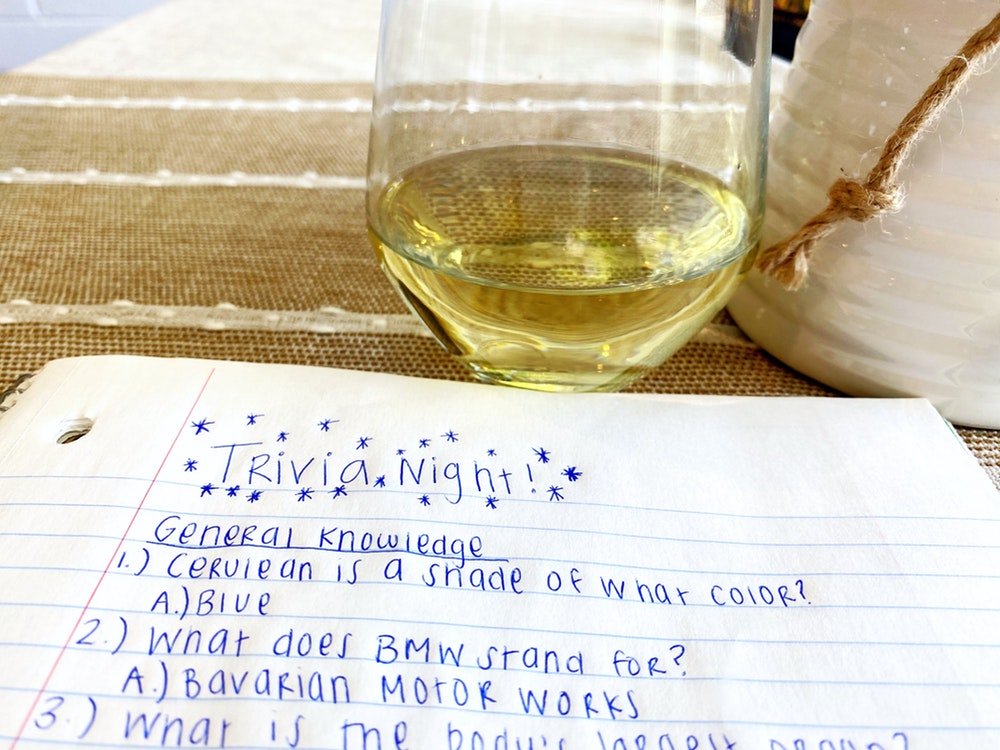 Trivia Night!
General Knowledge
1.) Cerulean is a shade of what color?
A.) Blue
2.) What does BMW stand for?
A.) Bavarian Motor Works
3.) What is the body's largest organ?